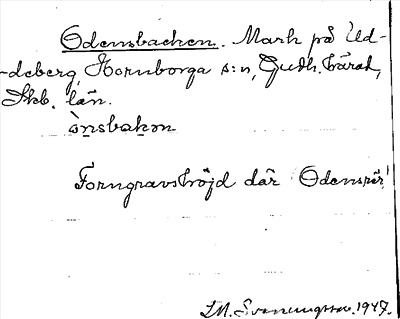 Odensbacken. Mark på Ud-
-deberg, Hornborga s:n, Gudh. härad,
Skb. län.
ònsbakən
Forngravshöjd där Odenspår!
I.M. Svenningsson. 1947.